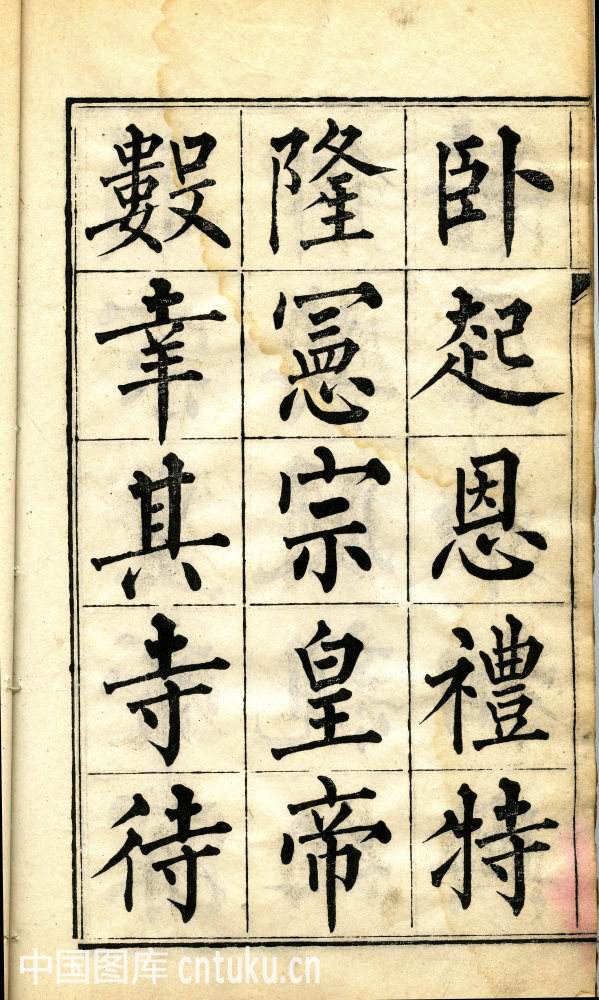 卧起恩禮特
隆憲宗皇帝
數幸其寺待
中国图库 cntuku.cn